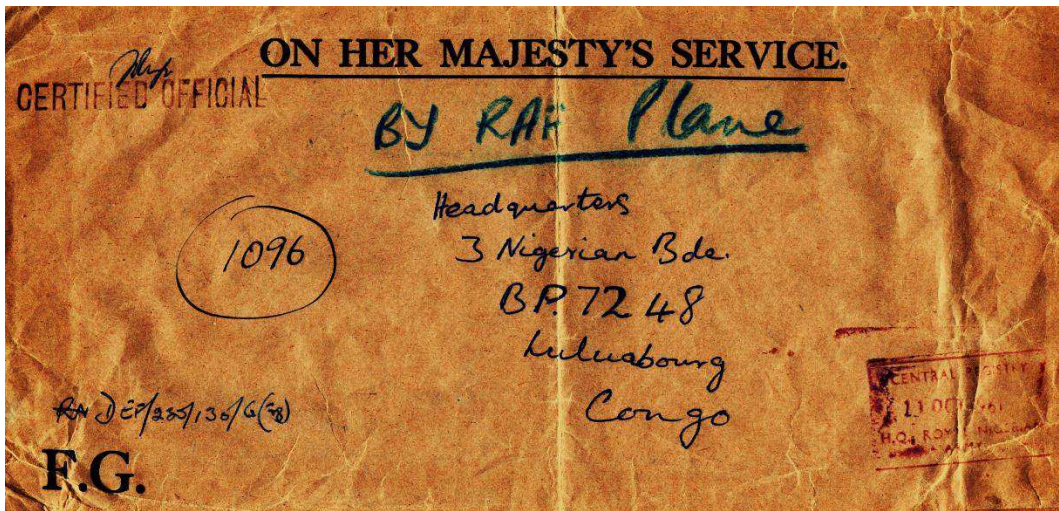 ON HER MAJESTY'S SERVICE.
CERTIFIED OFFICIAL
BY RAF Plane
Headquarters
3 Nigerian Bde.
1096
B.P. 7248
Luluabourg
Congo
CENTRAL REGISTRY
11 OCT 1961
H.Q. ROYAL NIGERIAN
ARMY
F.G.